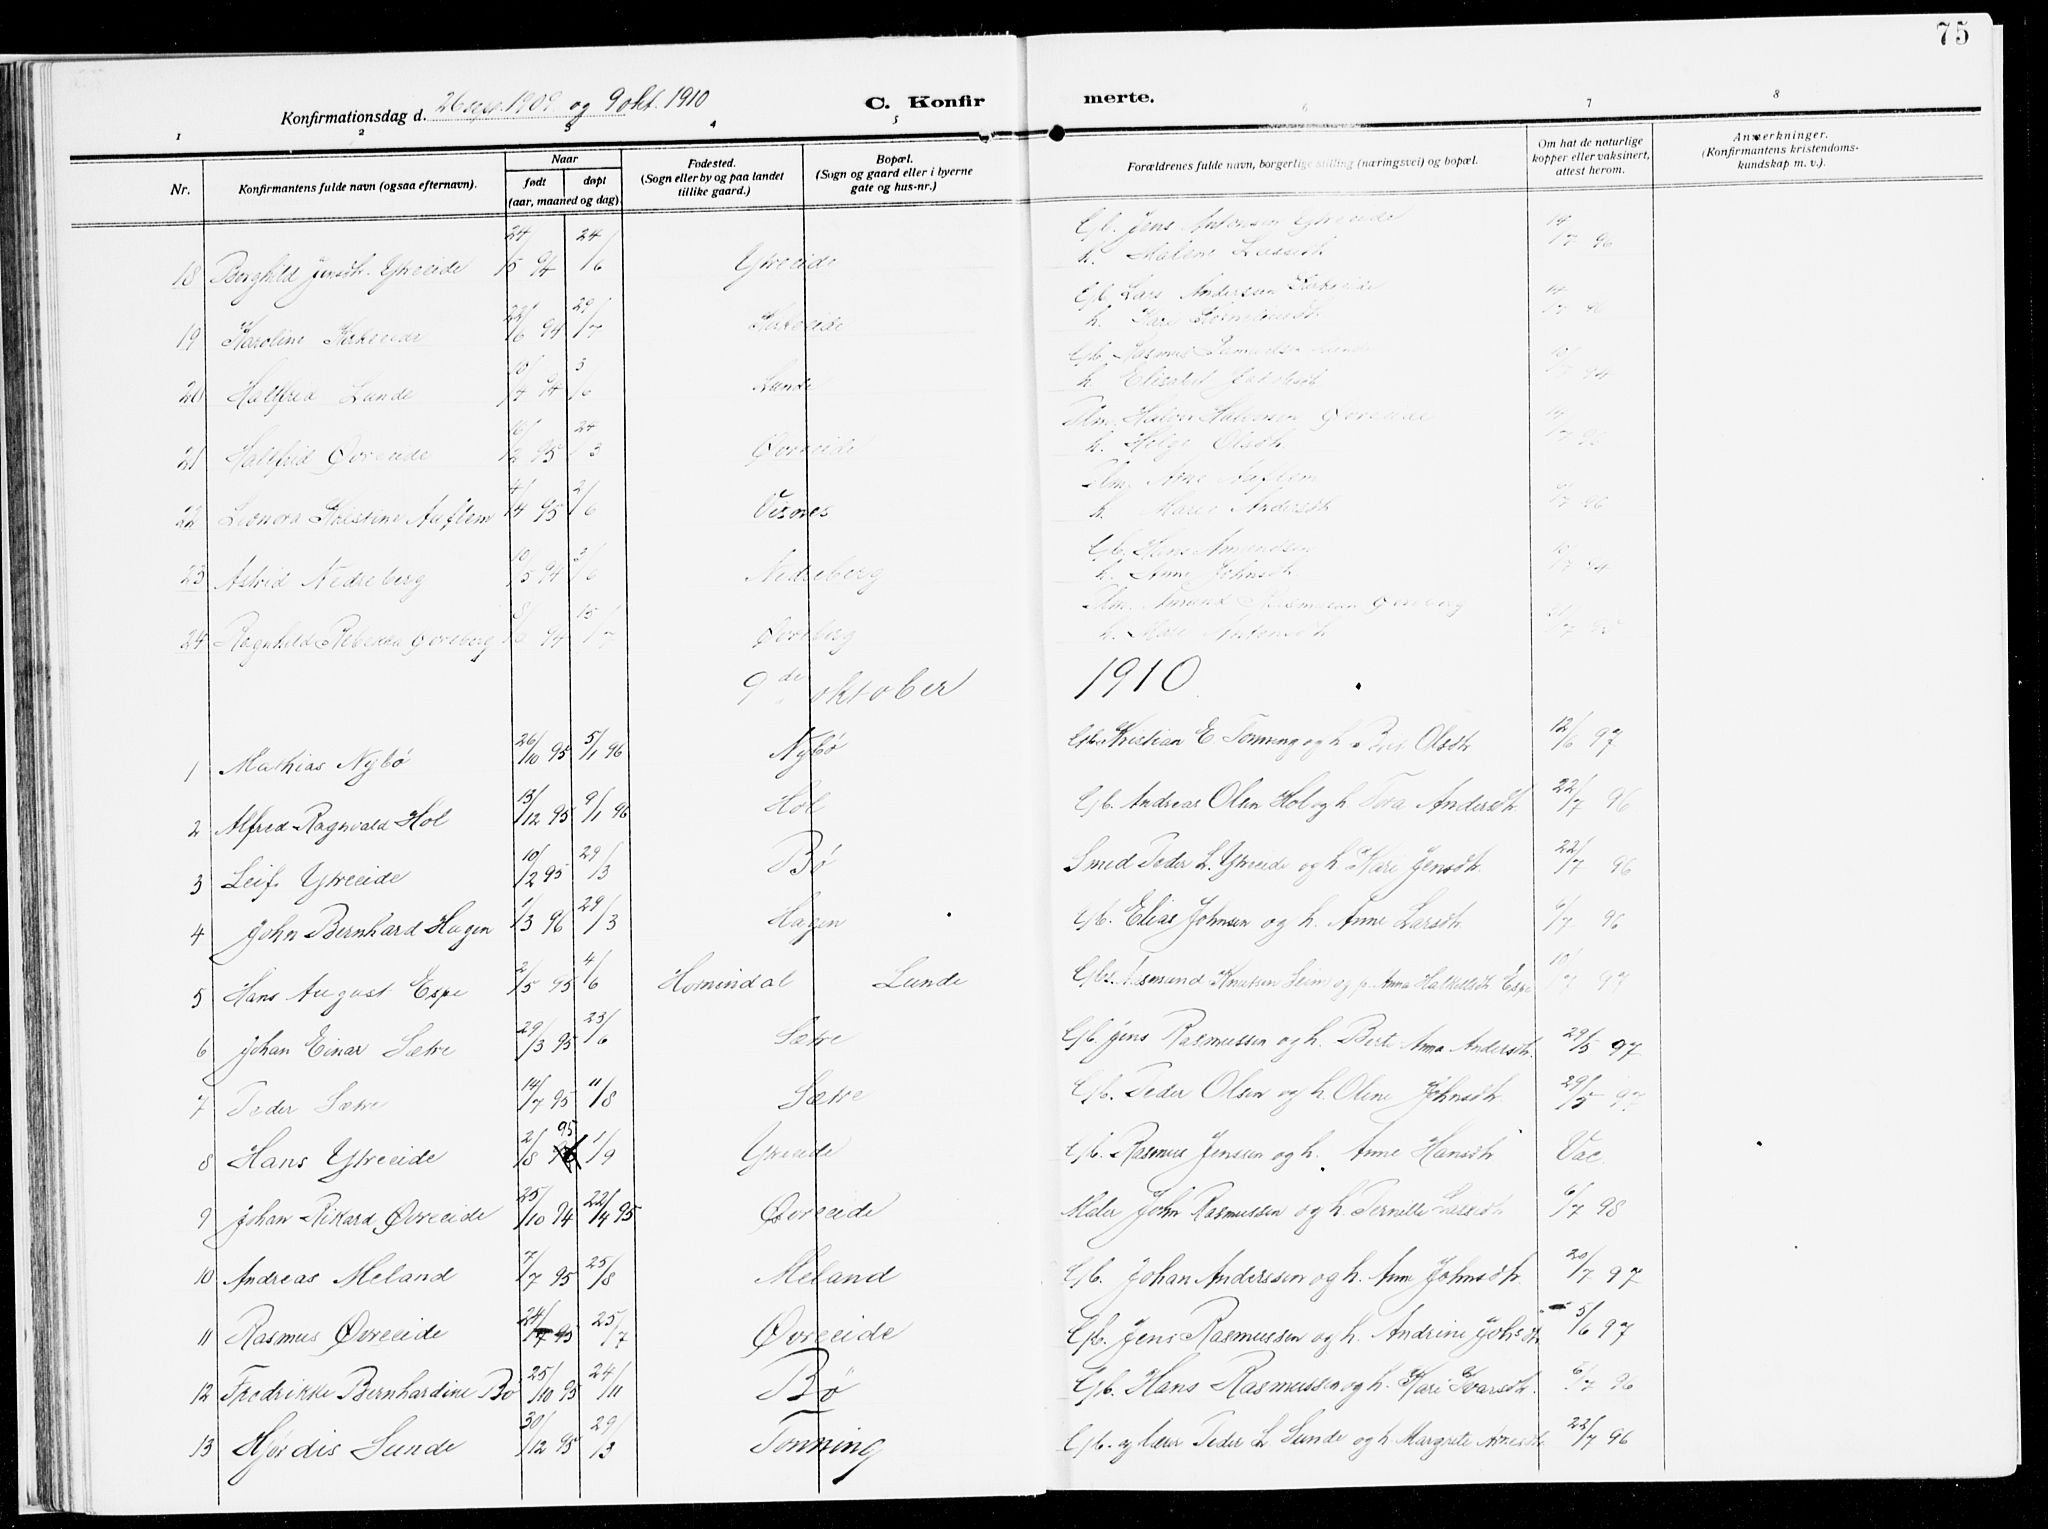 75
Konfirmationsdag d. 26 sept. 1909 og 9 okt. 1910 C. Konfirmerte.
1 2 3 4 5 6 7 8
Nr. Konfirmantens fulde navn (ogsaa efternavn). Naar født døpt (aar, maaned og dag) Fødested. (Sogn eller by og paa landet tillike gaard.) Bopæl. (Sogn og gaard eller i byerne gate og hus-nr.) Forældrenes fulde navn, borgerlige stilling (næringsvei) og bopæl. Om hat de naturlige kopper eller vaksinert, attest herom. Anmerkninger. (Konfirmantens kristendomskundskap m. v.).
18 Borghild Jensdh. Ytreeide 24/5 94 24/6 Ytreeide Gb. Jens Antonsen Ytreeide h. Malene Lassedh 14/7 96
19 Karoline Kirkeeide 22/6 94 29/7 Kirkeeide Gb. Lars Anderssen Kirkeeide h. Kari 14/7 96
20 Halfrid Lunde 10/4 94 3/6 Lunde Gb. Rasmus Samuelsen Lunde h. Elisabet 10/7 94
21 Halfrid Øvreeide 16/2 95 24/3 Øvreeide Plm. Halvor Halvorsen Øvreeide h. Helge Olsdh. 14/7 96
22 Leonora Kristine Auflem 4/4 95 2/6 Visnes Plm. Arne Auflem h. Marie Andersdh 96
23 Astrid Nedreberg 10/5 94 3/6 Nedreberg Gb. Hans Amundsen h. Anne Johnsdh 10/7 94
24 Ragnhild Rebekka Øvreberg 8/6 94 15/7 Øvreberg Plm. Amund Rasmussen Øvreberg h. Kari Antonsdh
9de oktober 1910
1 Mathias Nybø 26/10 95 5/1 96 Nybø Gb. Kristian E. Tonning og h. Bris Olsdh 12/6 97
2 Alfred Ragnvald Hol 13/12 95 9/1 96 Hol Gb. Andreas Olsen Hol og h. Tora Andersdh. 22/7 96
3 Leif Ytreeide 10/2 95 29/3 Bø Smed Peder L. Ytreeide og h. Kari Jensdh. 22/7 96
4 John Bernhard Hagen 1/3 96 29/3 Hagen Gb. Elias Johnsen og h. Anne Larsdh. 6/7 96
5 Hans August Espe 2/5 95 4/6 Hornindal Lunde Gbs. Aasmund Knutsen Seim og p. Anna Halkelsdh Espe 10/7 97
6 Johan Einar Sætre 29/3 95 23/6 Sætre Gb. Jens Rasmussen og h. Berte Anna Andersdh. 29/5 97
7 Peder Sætre 14/7 95 11/8 Sætre Gb. Peder Olsen og h. Oline Johnsdh. 29/5 97
8 Hans Ytreeide 2/8 95 1/9 Ytreeide Gb. Rasmus Jenssen og h. Anne Hansdh Vac.
9 Johan Rikard Øvreeide 25/10 94 22/4 95 Øvreeide Maler John Rasmussen og h. Pernille Lassedh 6/7 98
10 Andreas Meland 7/7 95 25/8 Meland Gb. Johan Anderssen og h. Anne Johnsdh. 20/7 97
11 Rasmus Øvreeide 24/4 95 25/7 Øvreeide Gb. Jens Rasmussen og h. Andrine Johsdh 5/6 97
12 Fredrikke Bernhardine Bø 25/10 95 24/11 Bø Gb. Hans Rasmussen og h. Kari Ivarsdh. 6/7 96
13 Hjørdis Lunde 30/12 95 29/3 Tonning Gb. og lærer Peder L. Lunde og h. Margrete Arnesdh. 22/7 96